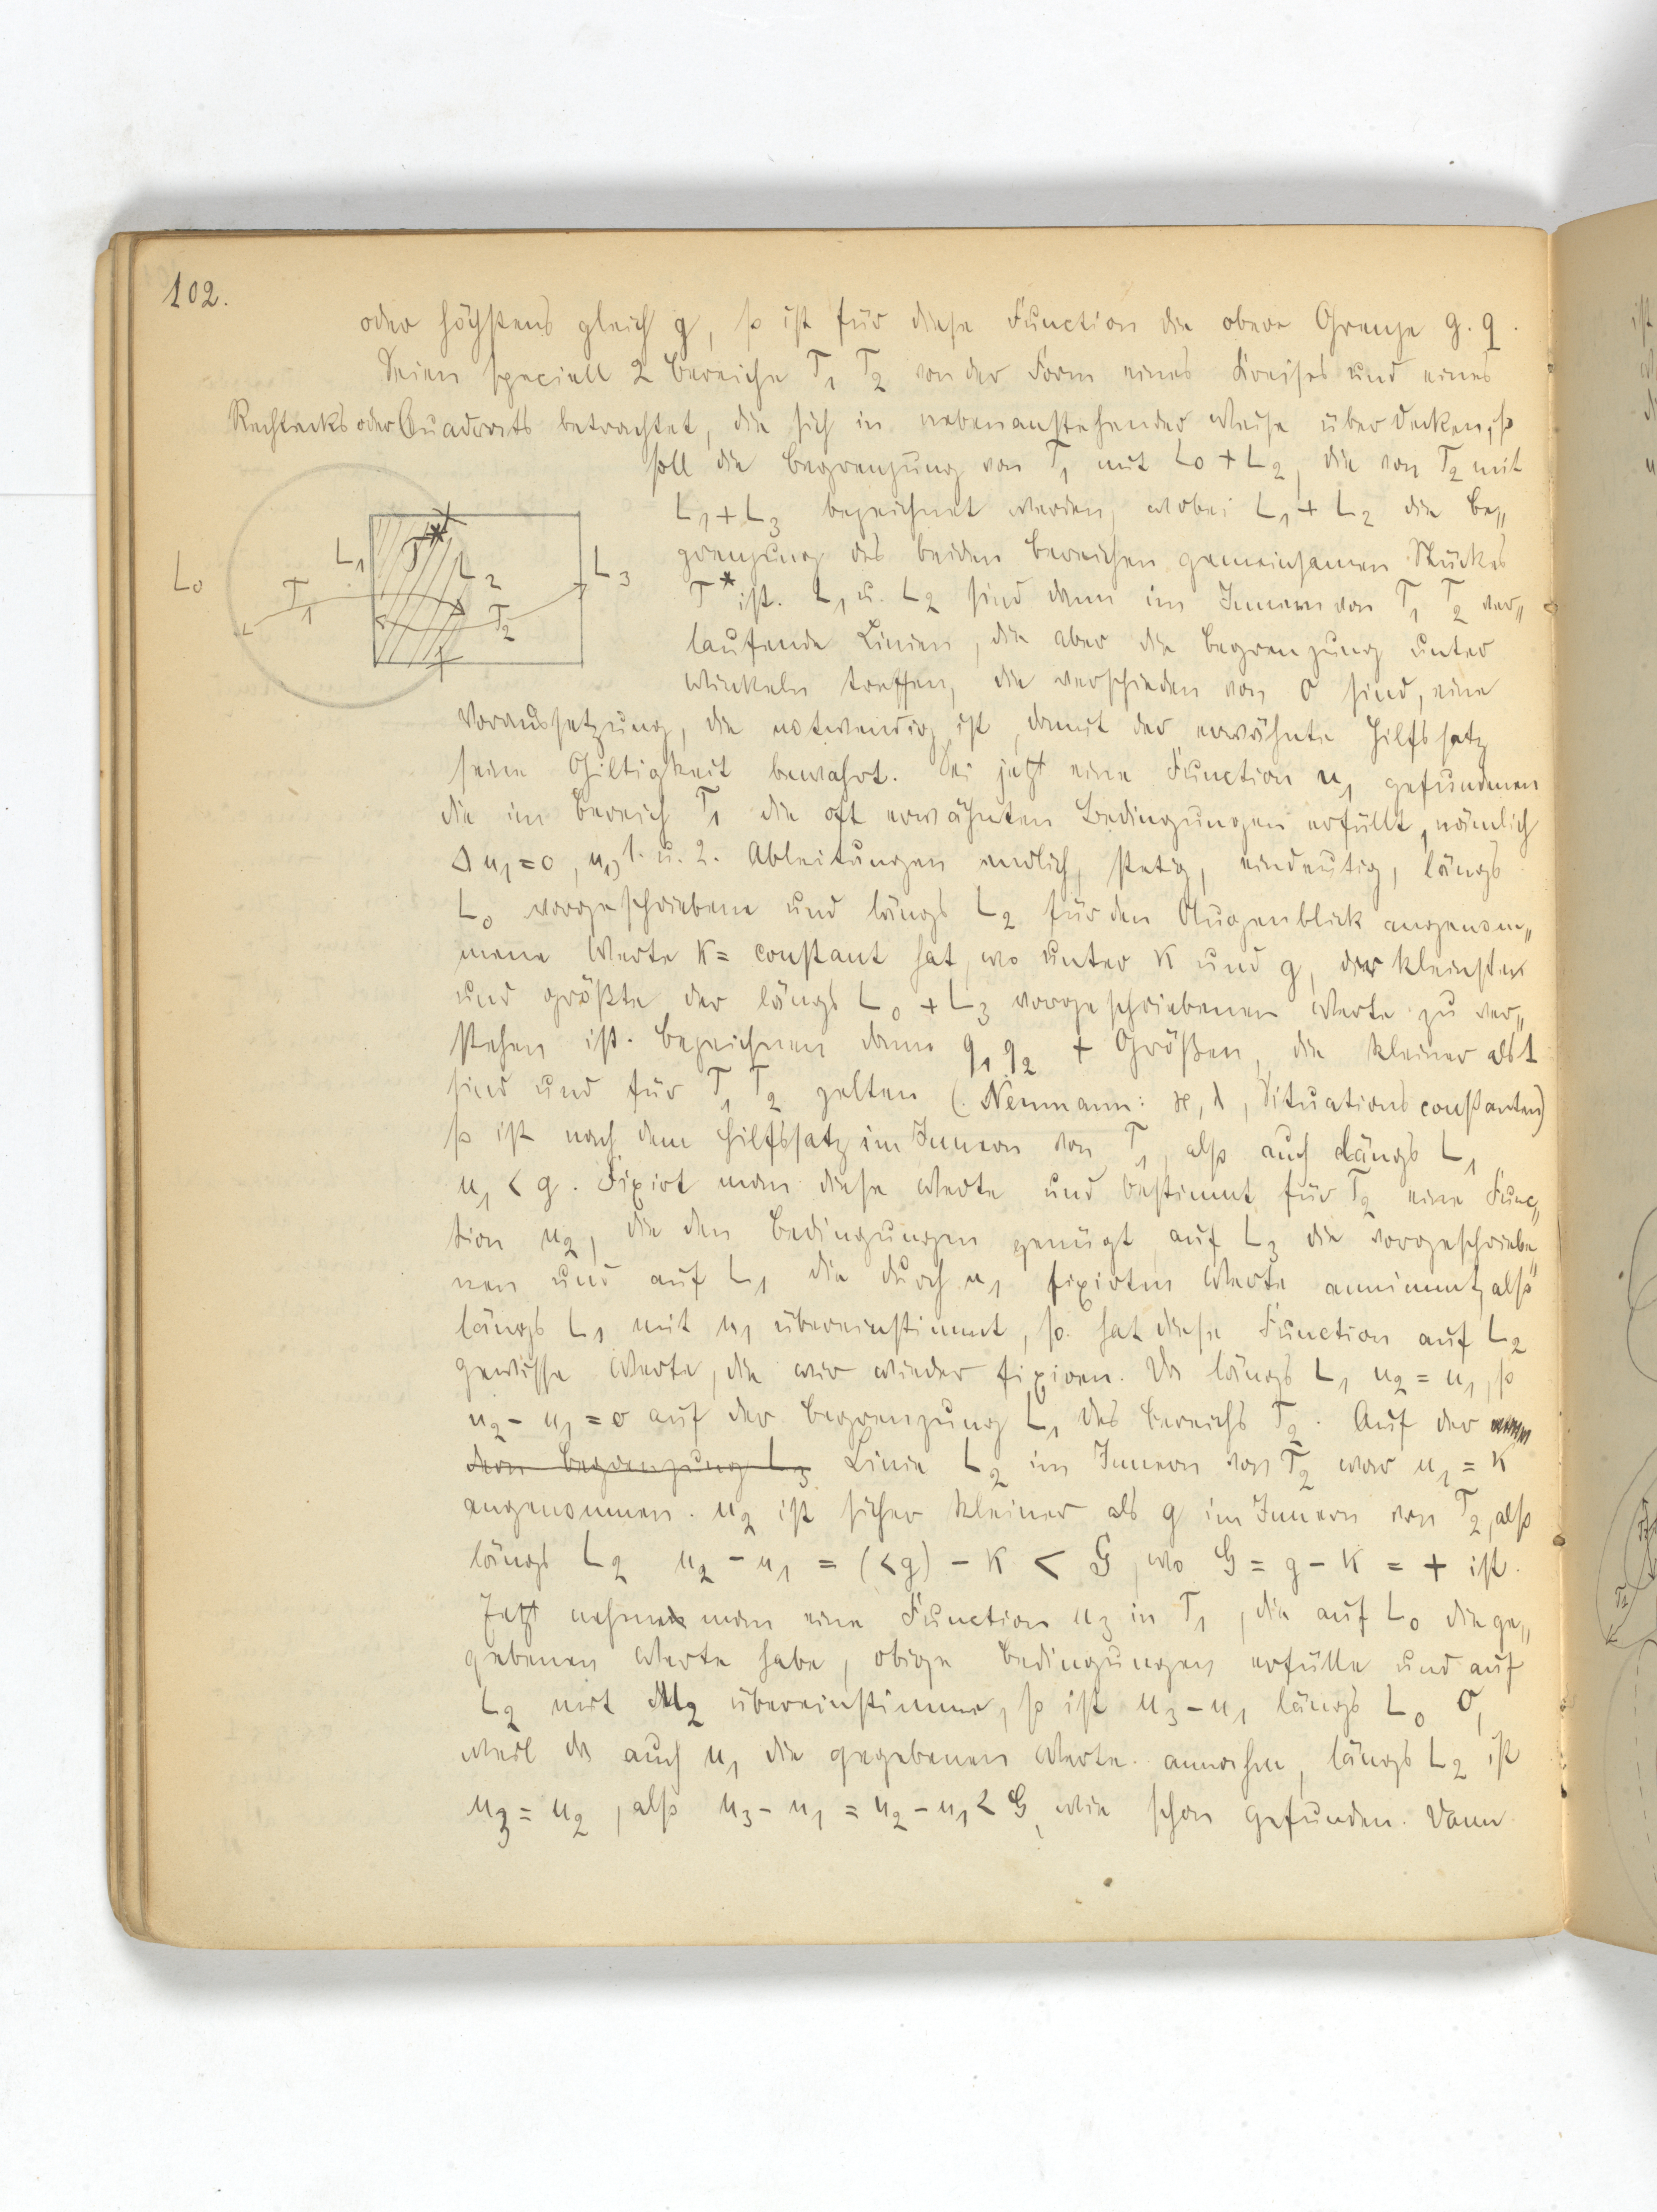 102.
oder höchstens gleich g, so ist für diese Function die obere Grenze g. q.
Seien speciell 2 Bereiche T₁ T₂ von der Form eines Kreises und eines
Rechtecks oder Quadrats betrachtet, die sich in nebenanstehender Weise überdecken, so
soll die Begrenzung von T₁ mit L₀ + L₂, die von T₂ mit
L₁ + L₃ bezeichnet werden, wobei L₁ + L₂ die Be„
grenzung des beiden Bereichen gemeinsamen Stückes
T* ist. L₁ u. L₂ sind dann im Innern von T₁ T₂ ver„
laufende Linien, die aber die Begrenzung unter
Winkeln treffen, die verschieden von 0 sind, eine
Voraussetzung, die notwendig ist, damit der erwähnte Hilfssatz
seine Giltigkeit bewahrt. Sei jetzt eine Function u₁ gefunden
die im Bereich T₁ die oft erwähnten Bedingungen erfüllt, nämlich
Δu₁ = 0, u₁, 1. u. 2. Ableitungen endlich, stetig, eindeutig, längs
L₀ vorgeschriebene und längs L₂ für den Augenblick angenom„
mene Werte K = constant hat, wo unter K und g, der kleinste
und größte der längs L₀ + L₃ vorgeschriebenen Werte zu ver„
stehen ist. Bezeichnen dann q₁ q₂ + Größen, die kleiner als 1
sind und für T₁ T₂ gelten (. Neumann: ϰ, λ, Situationsconstanten)
so ist nach dem Hilfssatz im Innern von T₁, also auch längs L₁
u₁ < g. Fixirt man diese Werte und bestimmt für T₂ eine Func„
tion u₂, die den Bedingungen genügt auf L₃ die vorgeschriebe„
nen und auf L₁ die durch u₁ fixirten Werte annimmt, also
längs L₁ mit u₁ übereinstimmt, so hat diese Function auf L₂
gewisse Werte, die wir wieder fixiren. Da längs L₁ u₂ = u₁, so
u₂ - u₁ = 0 auf der Begrenzung L₁ des Bereichs T₂. Auf der
dern Begrenzung L₃ Linie L₂ im Innern von T₂ war u₁ = K
angenommen. u₂ ist sicher kleiner als g im Innern von T₂, also
längs L₂ u₂ - u₁ = (<g) - K < G, wo G = g - K = + ist.
Jetzt nehme man eine Function u₃ in T₁, die auf L₀ die ge„
gebenen Werte habe, obige Bedingungen erfülle und auf
L₂ mit u₂ übereinstimme, so ist u₃ - u₁ längs L₀ 0,
weil da auch u₁ die gegebenen Werte annahm, längs L₂ ist
u₃ = u₂, also u₃ - u₁ = u₂ - u₁ < G, wie schon gefunden. Dann
L₀
T₁
L₁
T*
L₂
T₂
L₃